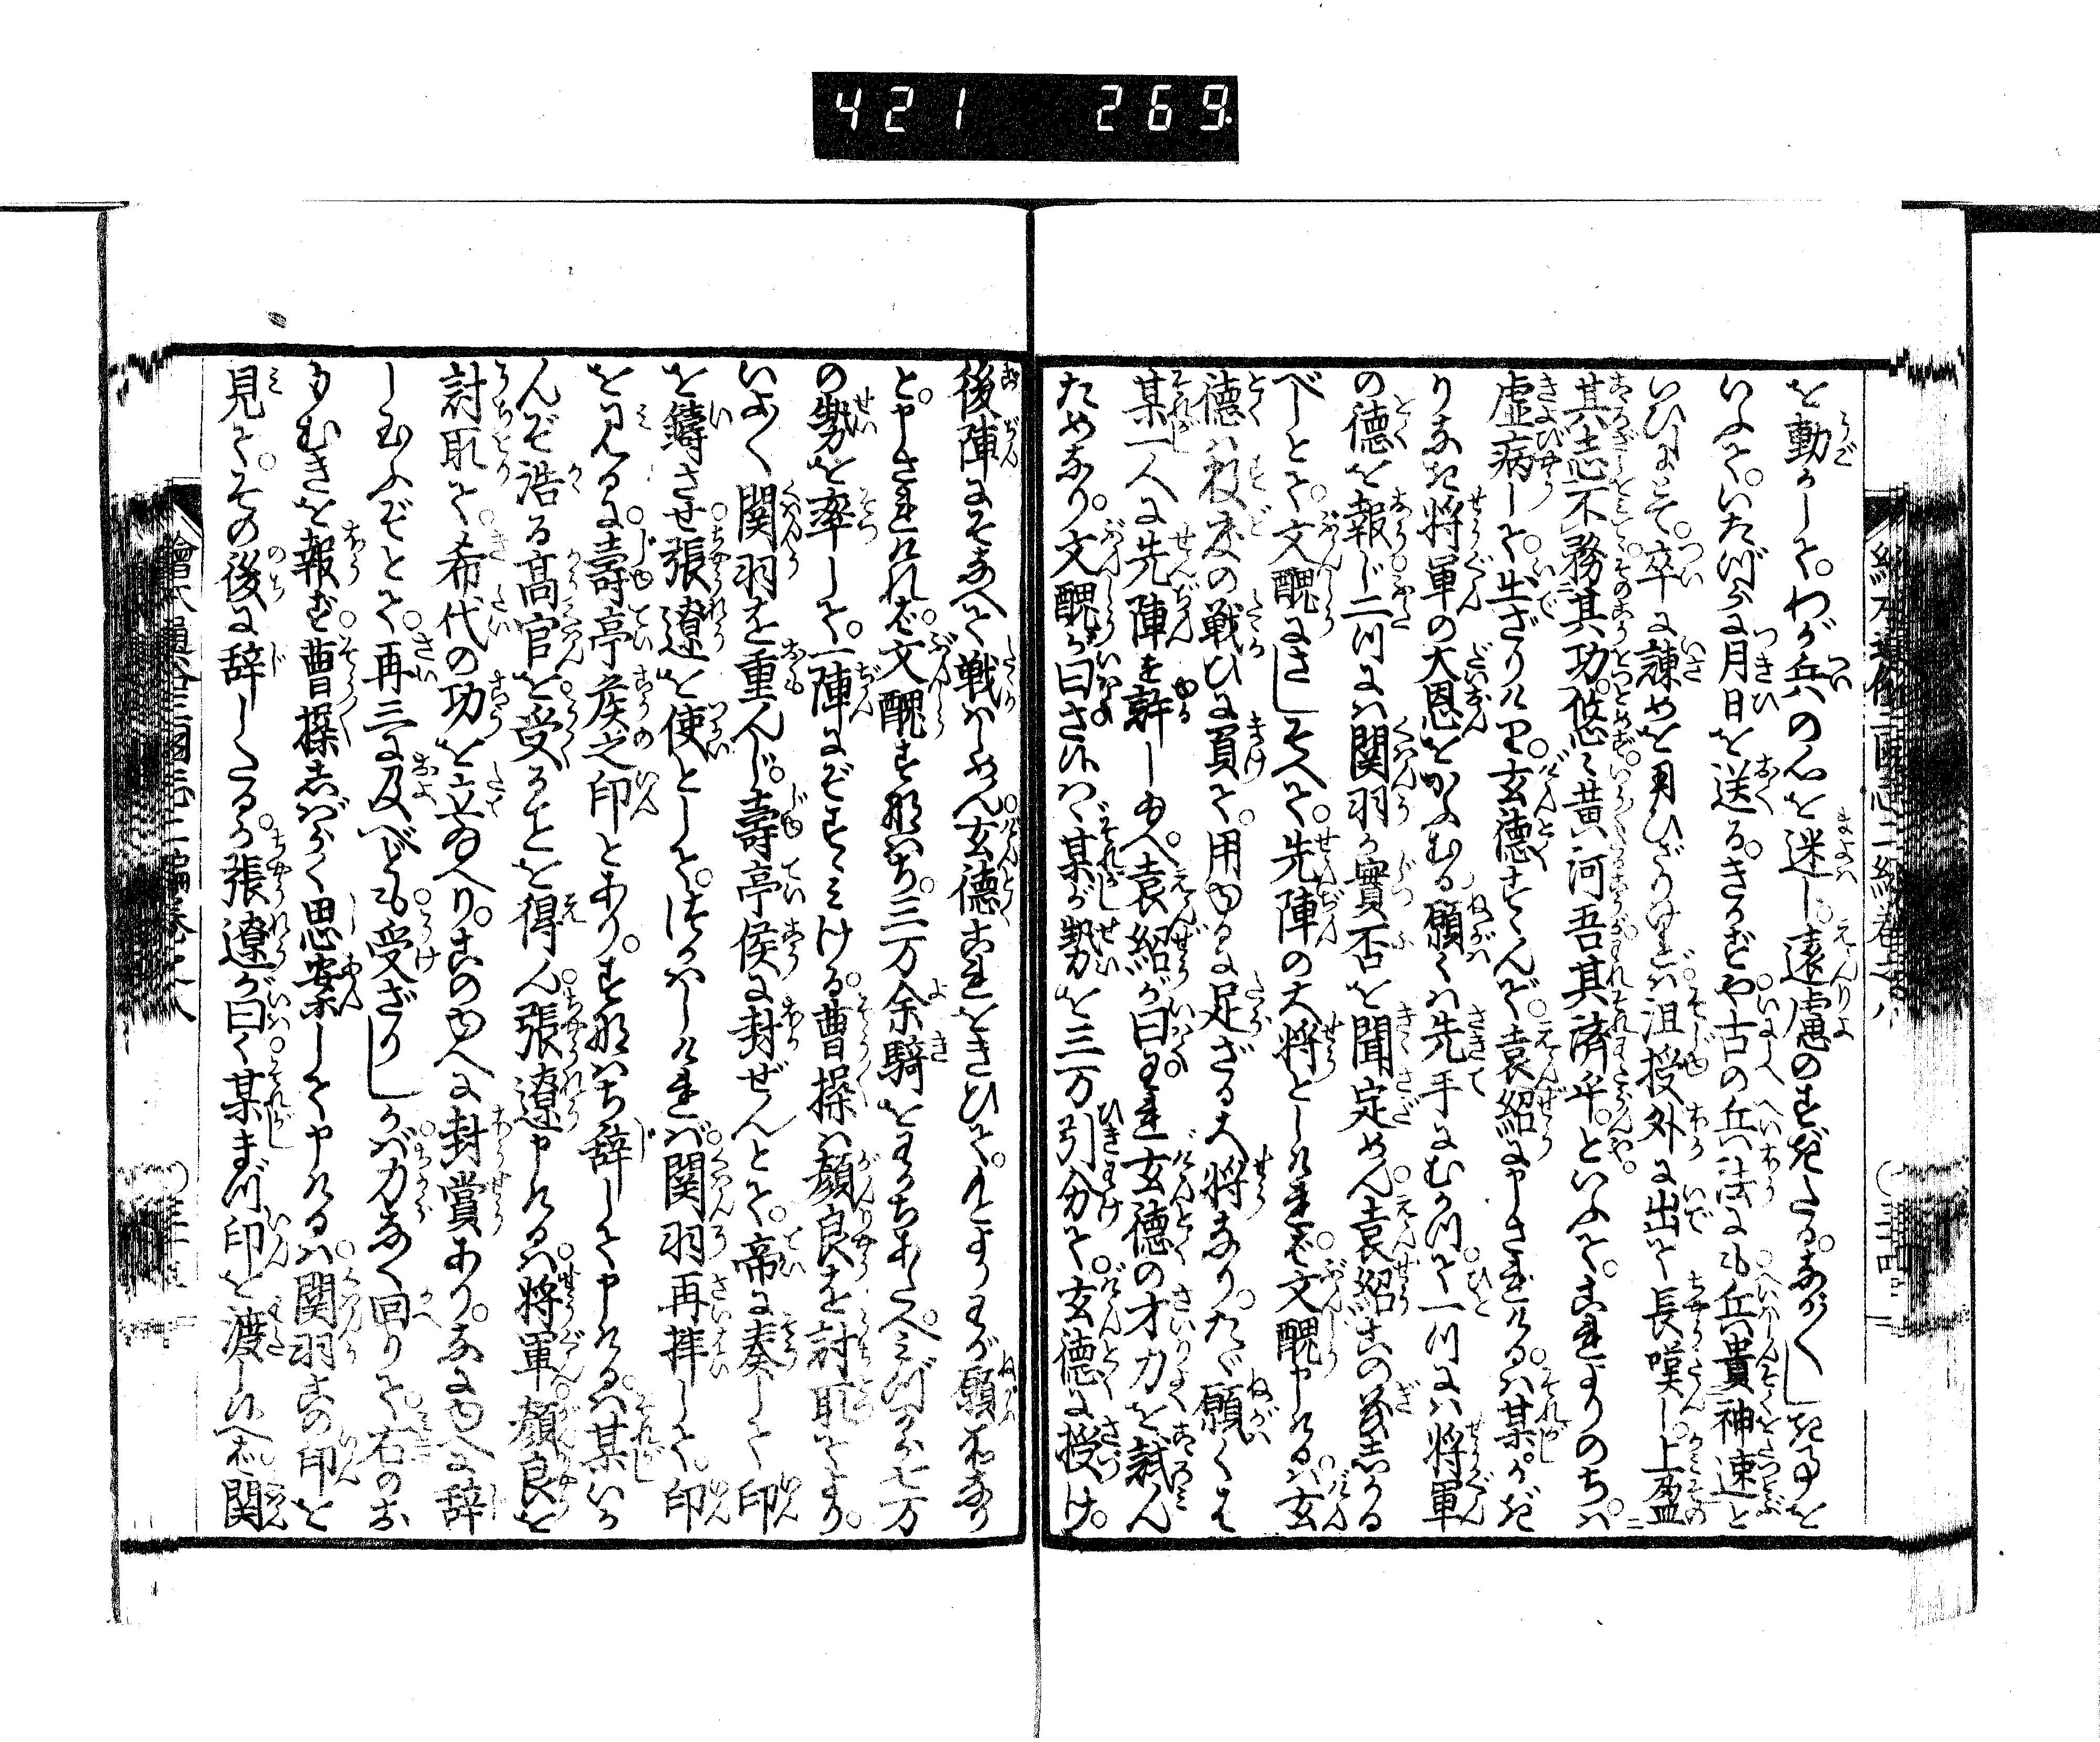 421 269
を動かして。わが兵の心を迷し。遠慮のすぎたる。ながくしき事を
いふて。いたづらに月日を送る。きかずや古の兵法にも兵貴神速と
いひしとぞ。卒に諫めを用ひざりければ沮授外に出て長嘆し。上盈
其志不務其功。悠々黄河吾其済乎。といふて。これよりのちハ
虚病して出ざりけり。玄徳すゝんで。袁紹に申されけるハ某かぎ
りなき将軍の大恩をかふむる願くハ先手にむかつて一ツにハ将軍
の徳を報じ二ツにハ関羽が實否を聞定めん。袁紹この義しかる
べしとて文醜にさしそへて。先陣の大将としければ文醜申けるハ玄
徳ハ数度の戦ひに負て。用ゆるに足ざる大将なり。たゞ願くは
某一人に先陣を許し給へ。袁紹が曰われ玄徳の才力を試ん
ためなり。文醜が曰さらバ某が勢を三万引分て。玄徳に授け。
後陣にそなへて戦ハしめん。玄徳これをきひて。もとよりわが願所なり
と申されければ。文醜すなハち。三万余騎をわかちあたへミづから七万
の勢を率して。一陣にぞすゝミける。曹操ハ顔良を討取てより。
いよ〳〵関羽を重んじ。壽亭侯に封ぜんとて。帝に奏して印
を鑄させ張遼を使として。つかハしければ。関羽再拝して。印
を見るに壽亭侯之印とあり。すなハち辞して申けるハ。某いか
んぞ浩る高官を受ることを得ん。張遼申けるハ。将軍顔良を
討取て。希代の功を立給へり。このゆへに封賞あり。なにゆへに辞
し玉ふぞとて。再三に及べども受ざりしかバ力なく回りて右のお
もむきを報ず。曹操しばらく思案して申けるハ関羽この印を
見て。その後に辞したるか。張遼が曰く某まづ印を渡し候へば関